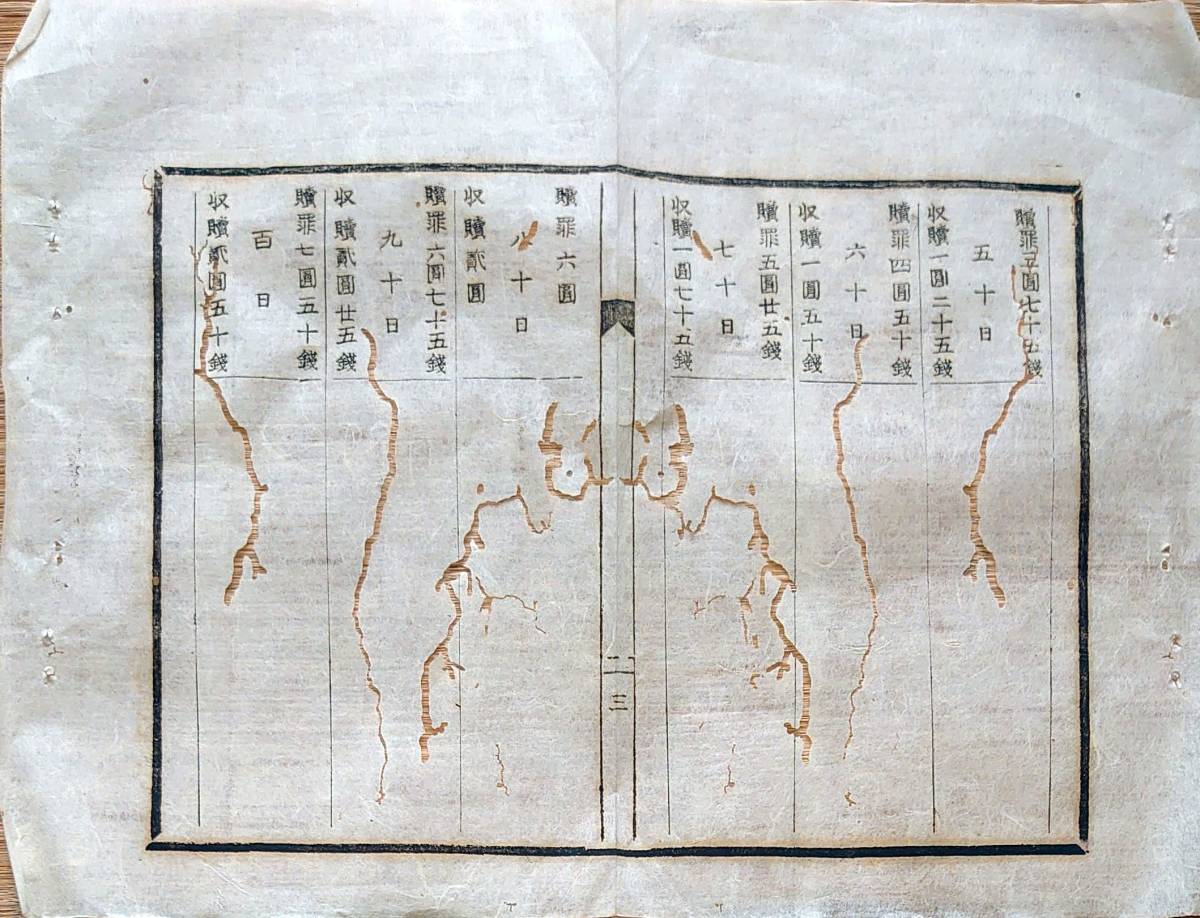 贖罪三圓七十五錢
五十日
収贖一圓二十五錢
贖罪四圓五十錢
六十日
収贖一圓五十錢
贖罪五圓廿五錢
七十日
収贖一圓七十五錢
三
贖罪六圓
八十日
収贖貳圓
贖罪六圓七十五錢
九十日
収贖貳圓廿五錢
贖罪七圓五十錢
百日
収贖貳圓五十錢